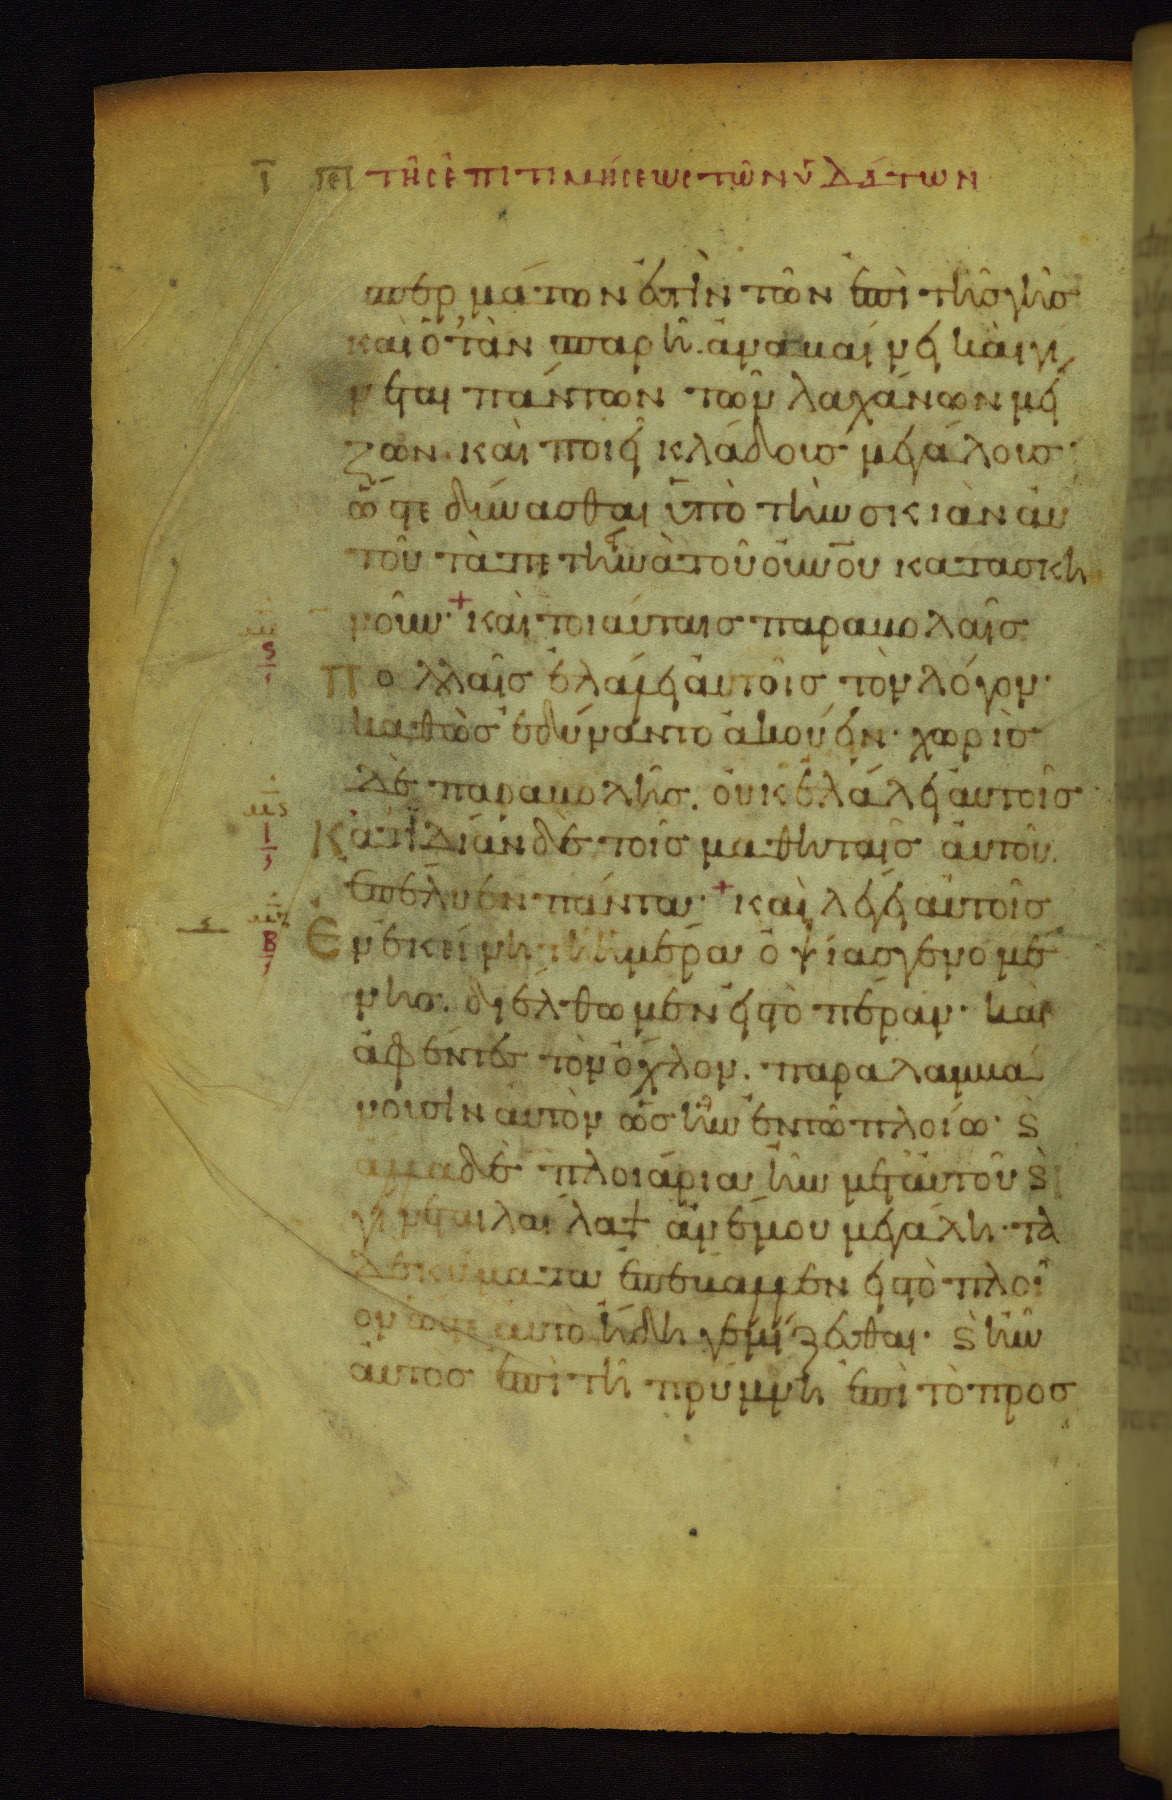 ῑ πει τῆς ἐπιτιμήσεως τῶν ὑδάτων
σπερμάτων ἐστὶν τῶν ἐπὶ τῆς γῆς
καὶ ὅταν σπαρῆ. ἀναβαίνει καὶ γί
νεται πάντων τῶν λαχάνων μεί
ζων. καὶ ποιεῖ κλάδοις μεγάλοις·
ὥστε δύνασθαι ὑπὸ τὴν σκιὰν αὐ
τοῦ τὰ πετηνὰ τοῦ οὐνοῦ κατασκη
νοῦν· + καὶ τοιαύταις παραβολαῖς
μδ
ς
πολλαῖς ἐλάλει αὐτοῖς τὸν λόγον·
καθὼς ἐδύναντο ἀκούειν· χωρὶς
δὲ παραβολῆς. οὐκ ἐλάλει αὐτοῖς·
Ι
Κατιδίαν δὲ τοῖς μαθηταῖς αὐτοῦ.
ἐπέλυεν πάντα· + καὶ λέγει αὐτοῖς
μζ
Β
Ἐν ἐκείνη τῆ ἡμέρα ὀψίας γενομέ
νης. διέλθωμεν εἰς τὸ πέραν· καὶ
ἀφέντες τὸν ὄχλον. παραλαμβά
νουσιν αὐτὸν ὡς ἦν ἐν τῶ πλοίω· ϛ
ἅμα δὲ πλοιάρια ἦν μετ αὐτοῦ ϛ
γίνεται λαίλαψ ἀνέμου μεγάλη· τὰ
δὲ κύματα ἐπέβαλλεν εἰς τὸ πλοῖ
ον ὥστε αὐτὸ ἤδη γεμίζεσθαι· ϛ ἦν
αὐτὸς ἐπὶ τῆ πρύμνη ἐπὶ τὸ προσ